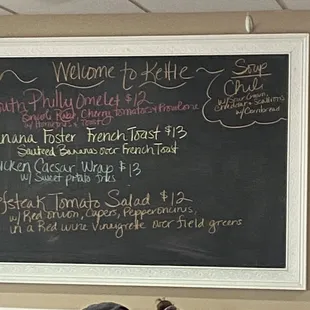 Welcome to Kettle
Soup
Chili
w/ Sour Cream,
Cheddar + Scallions
w/ Cornbread
outh Philly Omelet $12
Broccoli Rabe, Cherry Tomatoes + Provolone
w/ Homefries + Toast
anana Foster French Toast $13
Sauteed Bananas over French Toast
hicken Caesar Wrap $13
w/ Sweet Potato Fries
efsteak Tomato Salad $12
w/ Red onion, Capers, Pepperoncinis
in a Red wine Vinaigrette over field greens